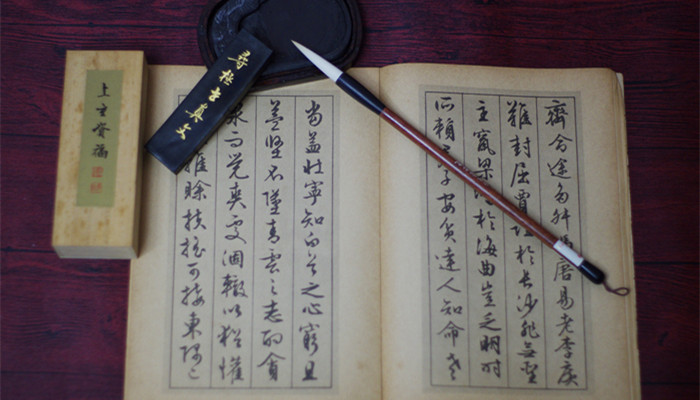 齊命途多舛馮唐易老李廣
難封屈賈誼於長沙非無聖
主竄梁鴻於海曲豈乏明時
所賴君子安貧達人知命老
當益壯寧知白首之心窮且
益堅不墜青雲之志酌貪
泉而覺爽處涸轍以猶懽
雖賒扶搖可接東隅已